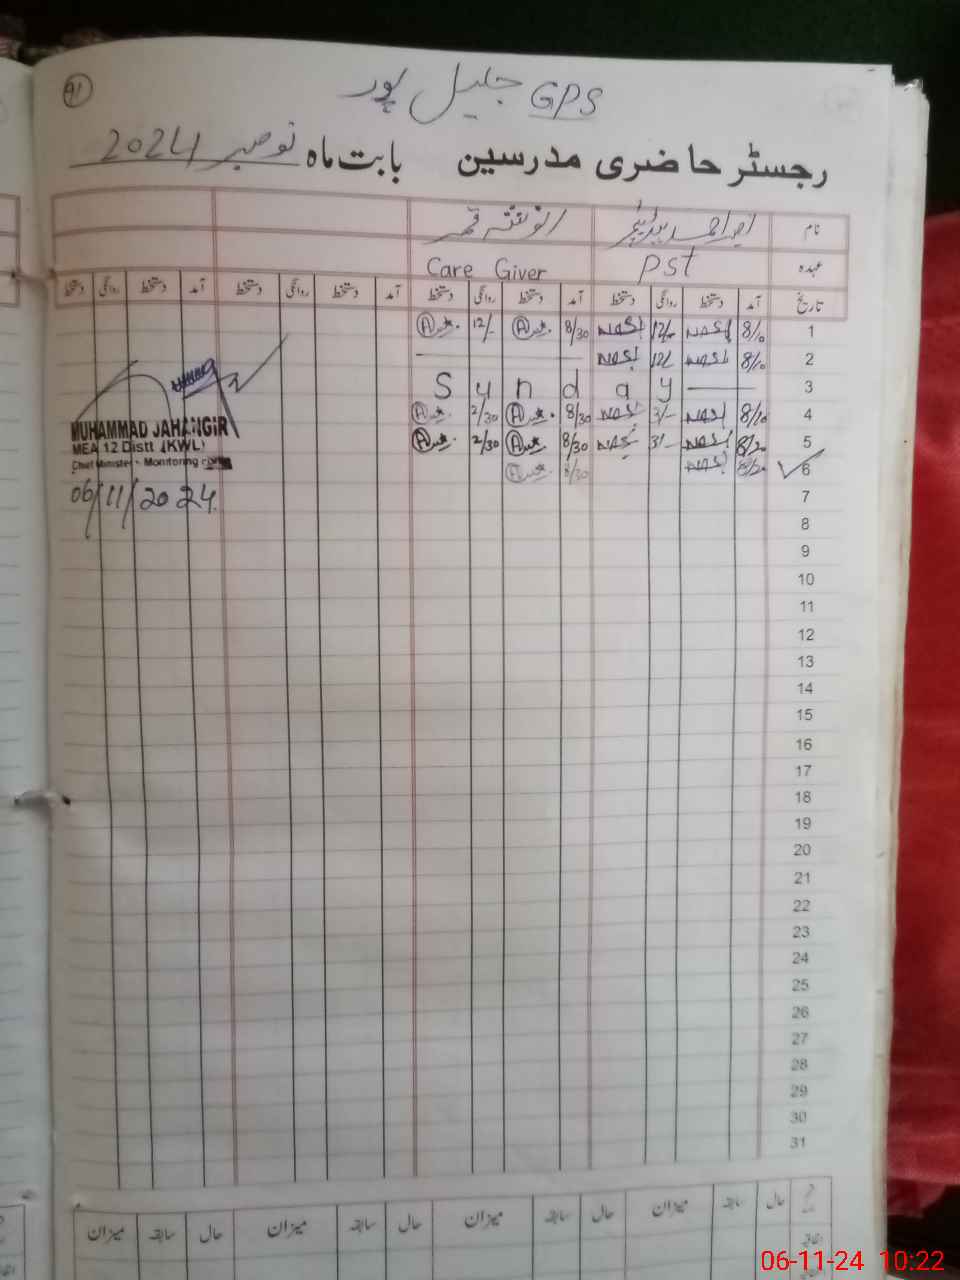 91
GPS جلیل پور
رجسٹر حاضری مدرسین بابت ماہ نومبر 2024
نام
عہدہ PST Care Giver
تاریخ آمد دستخط روانگی دستخط آمد دستخط روانگی دستخط آمد دستخط روانگی دستخط آمد دستخط روانگی دستخط
1 8/10 12/- 8/30 12/-
2 8/10 12/-
3 Sunday
4 8/20 3/- 8/30 2/30
5 8/20 3/- 8/30 2/30
6 8/20 8/30
MUHAMMAD JAHANGIR
MEA 12 Distt (KWL)
Chief Minister's Monitoring
06/11/2024
7
8
9
10
11
12
13
14
15
16
17
18
19
20
21
22
23
24
25
26
27
28
29
30
31
حال سابقہ میزان حال سابقہ میزان حال سابقہ میزان حال سابقہ میزان
06-11-24 10:22